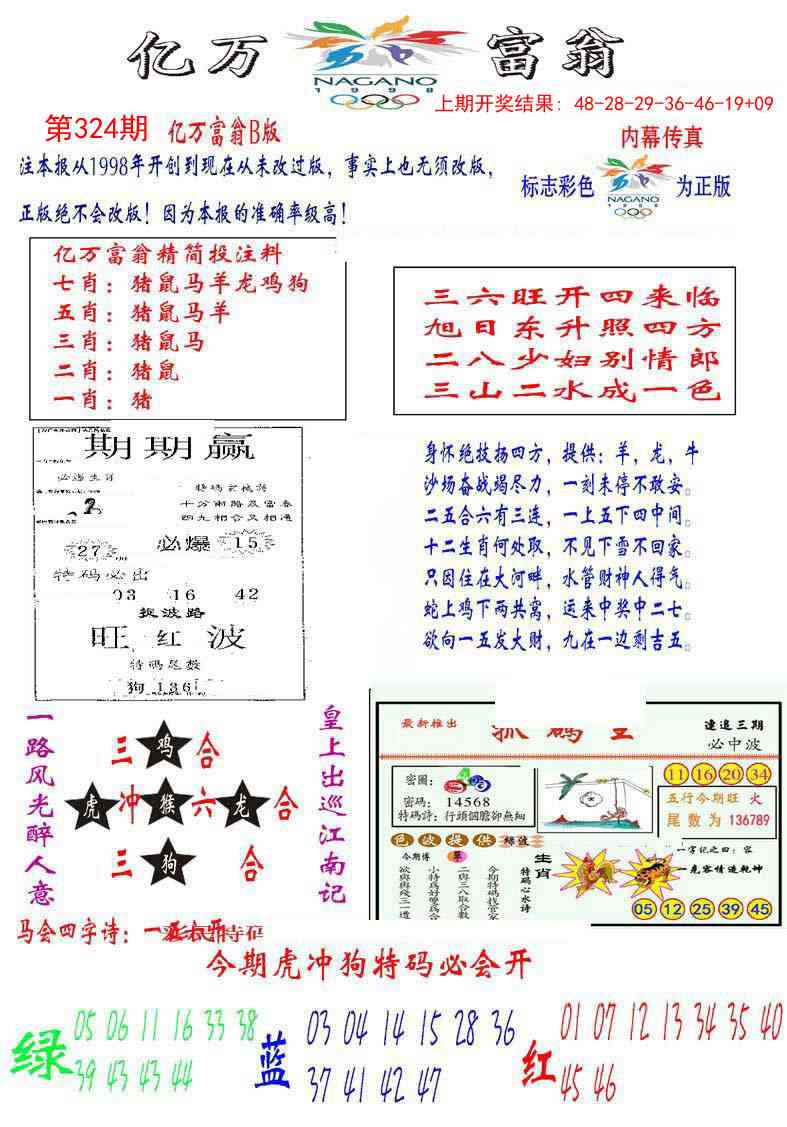 亿万富翁
NAGANO
1998
上期开奖结果：48-28-29-36-46-19+09
第324期 亿万富翁B版
内幕传真
注本报从1998年开创到现在从未改过版，事实上也无须改版，
正版绝不会改版！因为本报的准确率级高！
标志彩色
NAGANO
1998
为正版
亿万富翁精简投注料
七肖：猪鼠马羊龙鸡狗
五肖：猪鼠马羊
三肖：猪鼠马
二肖：猪鼠
一肖：猪
三六旺开四来临
旭日东升照四方
二八少妇别情郎
三山二水成一色
期期赢
十分雨路及富春
四九相合又相通
27
必爆
15
特码必出
03 16 42
捉波路
旺红波
特码尾数
狗136
身怀绝技扬四方，提供：羊，龙，牛
沙场奋战竭尽力，一刻未停不敢妄。
二五合六有三连，一上五下四中间。
十二生肖何处取，不见下雪不回家。
只因住在大河畔，水管财神人得气。
蛇上鸡下两共窝，运来中奖中二七。
欲向一五发大财，九在一边剩吉五。
一路风光醉人意
三鸡合
虎冲猴六龙合
三狗合
皇上出巡江南记
最新推出
连追三期
必中波
密圖：
密碼：14568
特碼詩：行頭個膽卻無細
11 16 20 34
五行今期旺 火
尾数为 136789
色波提供
绿波
今期博
草
欲與與殘三一連
小特為好雙為合
二與三八取合數
今期特碼找管家
特码心水诗
生肖
一字记之曰：容
05 12 25 39 45
马会四字诗：
今期虎冲狗特码必会开
绿
05 06 11 16 33 38
39 43 43 44
蓝
03 04 14 15 28 36
37 41 42 47
红
01 07 12 13 34 35 40
45 46